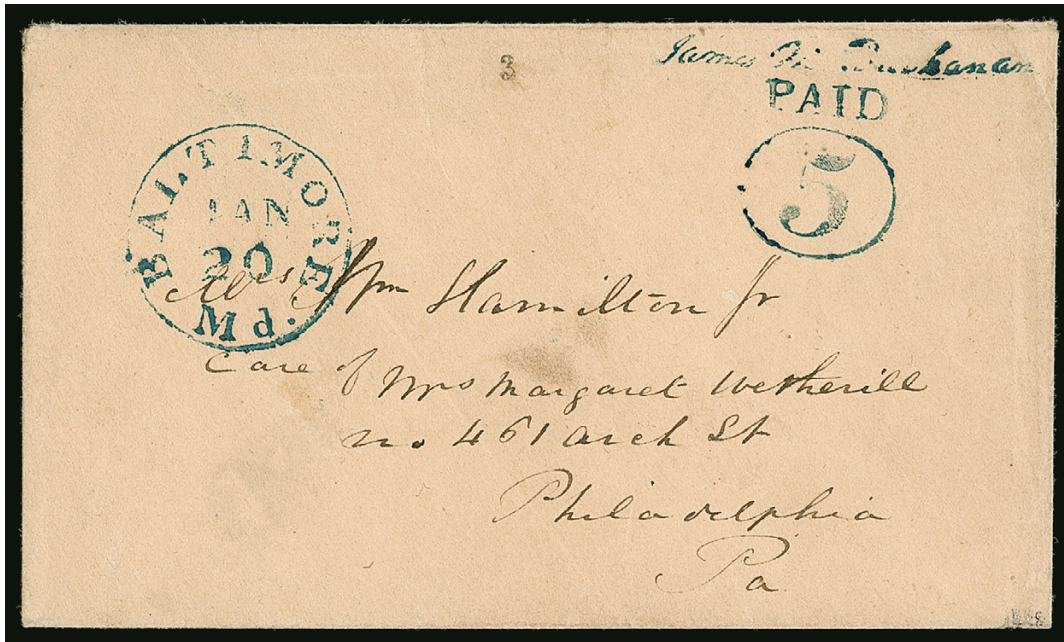 3
James M. Buchanan
PAID
5
BALTIMORE
JAN
20
Md.
Mrs Wm Hamilton Jr
Care of Mrs Margaret Wetherill
no 461 arch St
Philadelphia
Pa